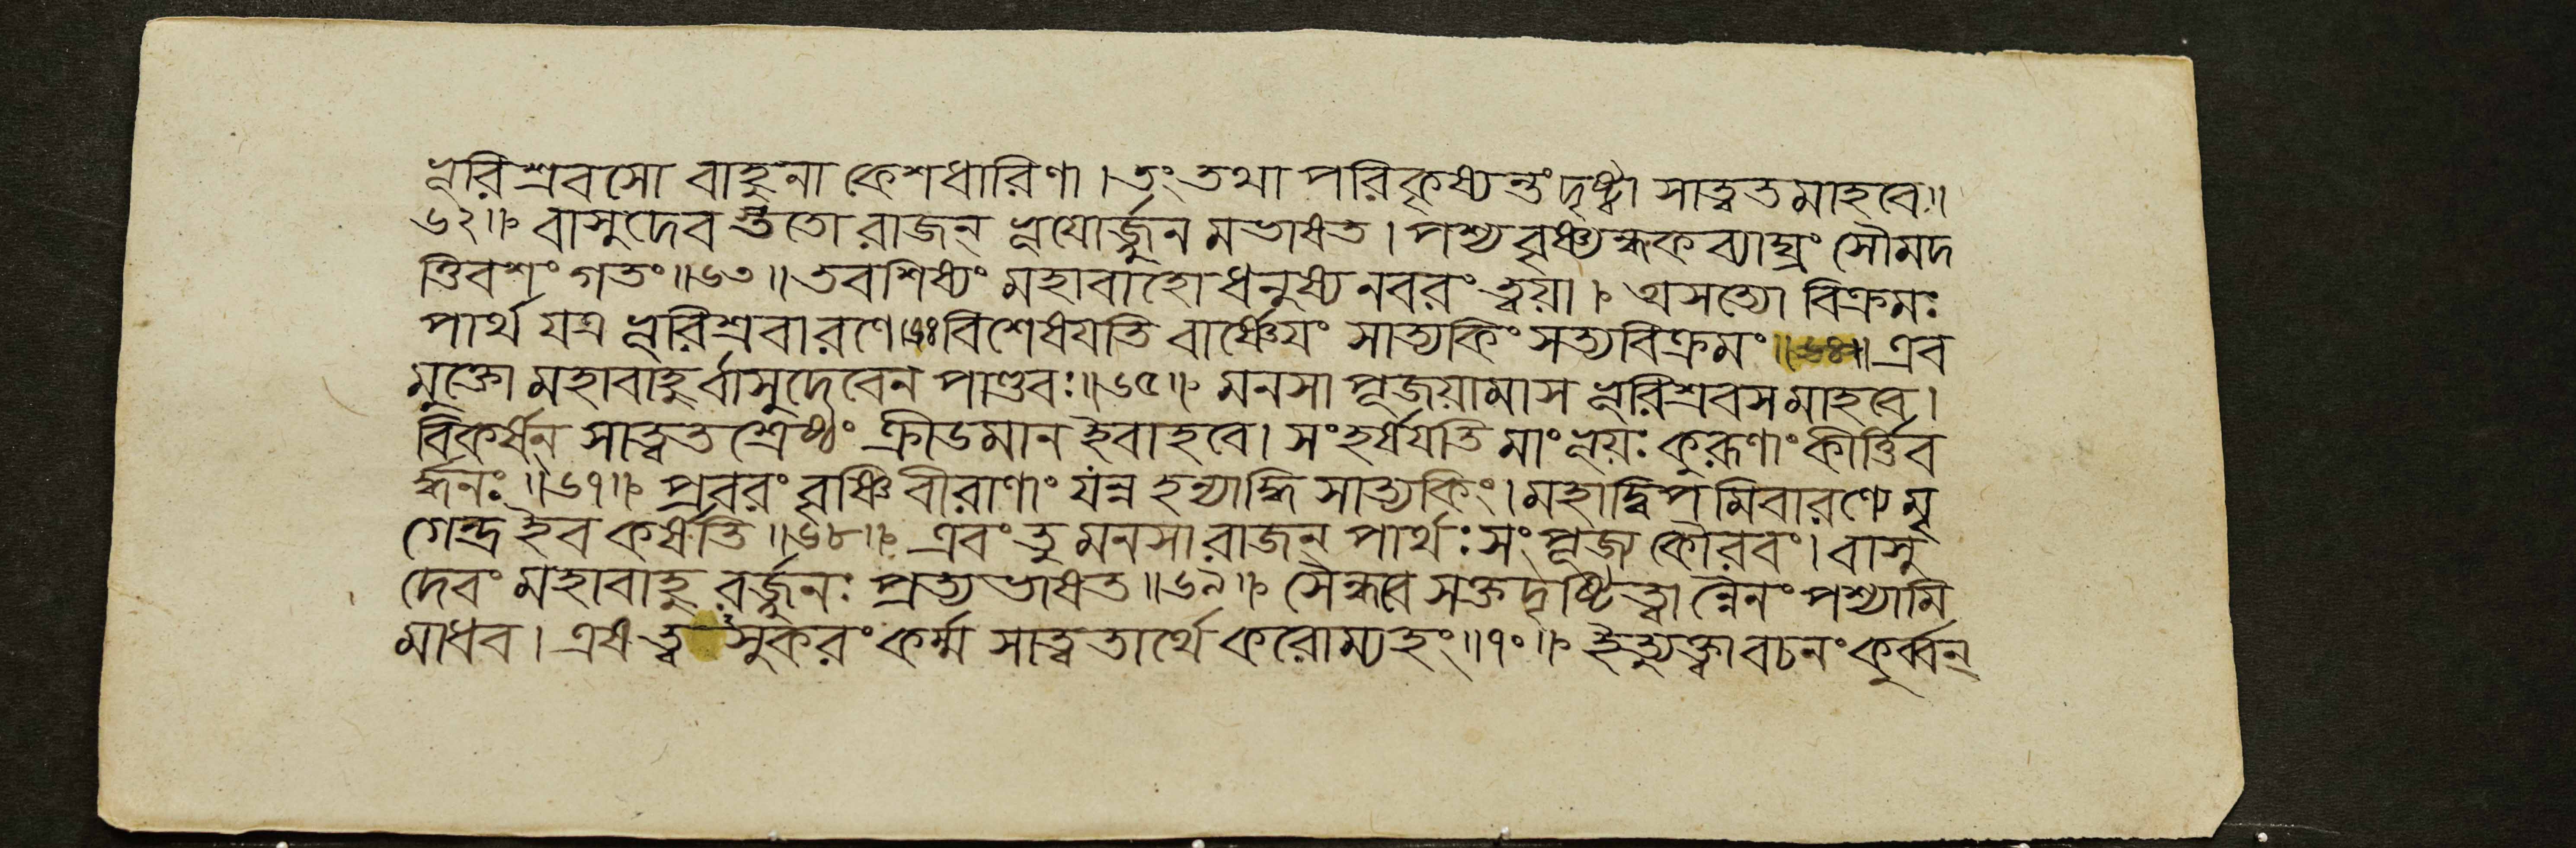 ভূরিশ্রবসো বাহুনা কেশধারিণা। তং তথা পরিকৃষ্যন্তং দৃষ্ট্বা সাত্বতমাহবে॥
৬২॥ বাসুদেবস্ততো রাজন্ ভূযোর্জ্জুনমভাষত। পশ্য বৃষ্ণ্যন্ধকব্যাঘ্রং সৌমদ
ত্তিবশং গতং॥৬৩॥ তব শিষ্যং মহাবাহো ধনুষ্যনবরং ত্বয়া। অসত্যো বিক্রমঃ
পার্থ যত্র ভূরিশ্রবা রণে॥ বিশেষযতি বার্ষ্ণেযং সাত্যকিং সত্যবিক্রমং॥৬৪॥ এব
মুক্তো মহাবাহুর্বাসুদেবেন পাণ্ডবঃ॥৬৫॥ মনসা পূজয়ামাস ভূরিশ্রবসমাহবে।
বিকর্ষন্ সাত্বতশ্রেষ্ঠং ক্রীডমান ইবাহবে। সংহর্ষযতি মাং ভূয়ঃ কুরূণাং কীর্ত্তিব
র্দ্ধনঃ॥৬৭॥ প্রবরং বৃষ্ণিবীরাণাং যন্ন হন্যাদ্ধি সাত্যকিং। মহাদ্বিপমিবারণ্যে মৃ
গেন্দ্র ইব কর্ষতি॥৬৮॥ এবং তু মনসা রাজন্ পার্থঃ সংপূজ্য কৌরবং। বাসু
দেবং মহাবাহুরর্জ্জুনঃ প্রত্যভাষত॥৬৯॥ সৈন্ধবসক্তদৃষ্টিত্বান্নৈনং পশ্যামি
মাধব। এষ ত্বসুকরং কর্ম্ম সাত্বতার্থে করোম্যহং॥৭০॥ ইত্যুক্ত্বা বচনং কুর্ব্বন্